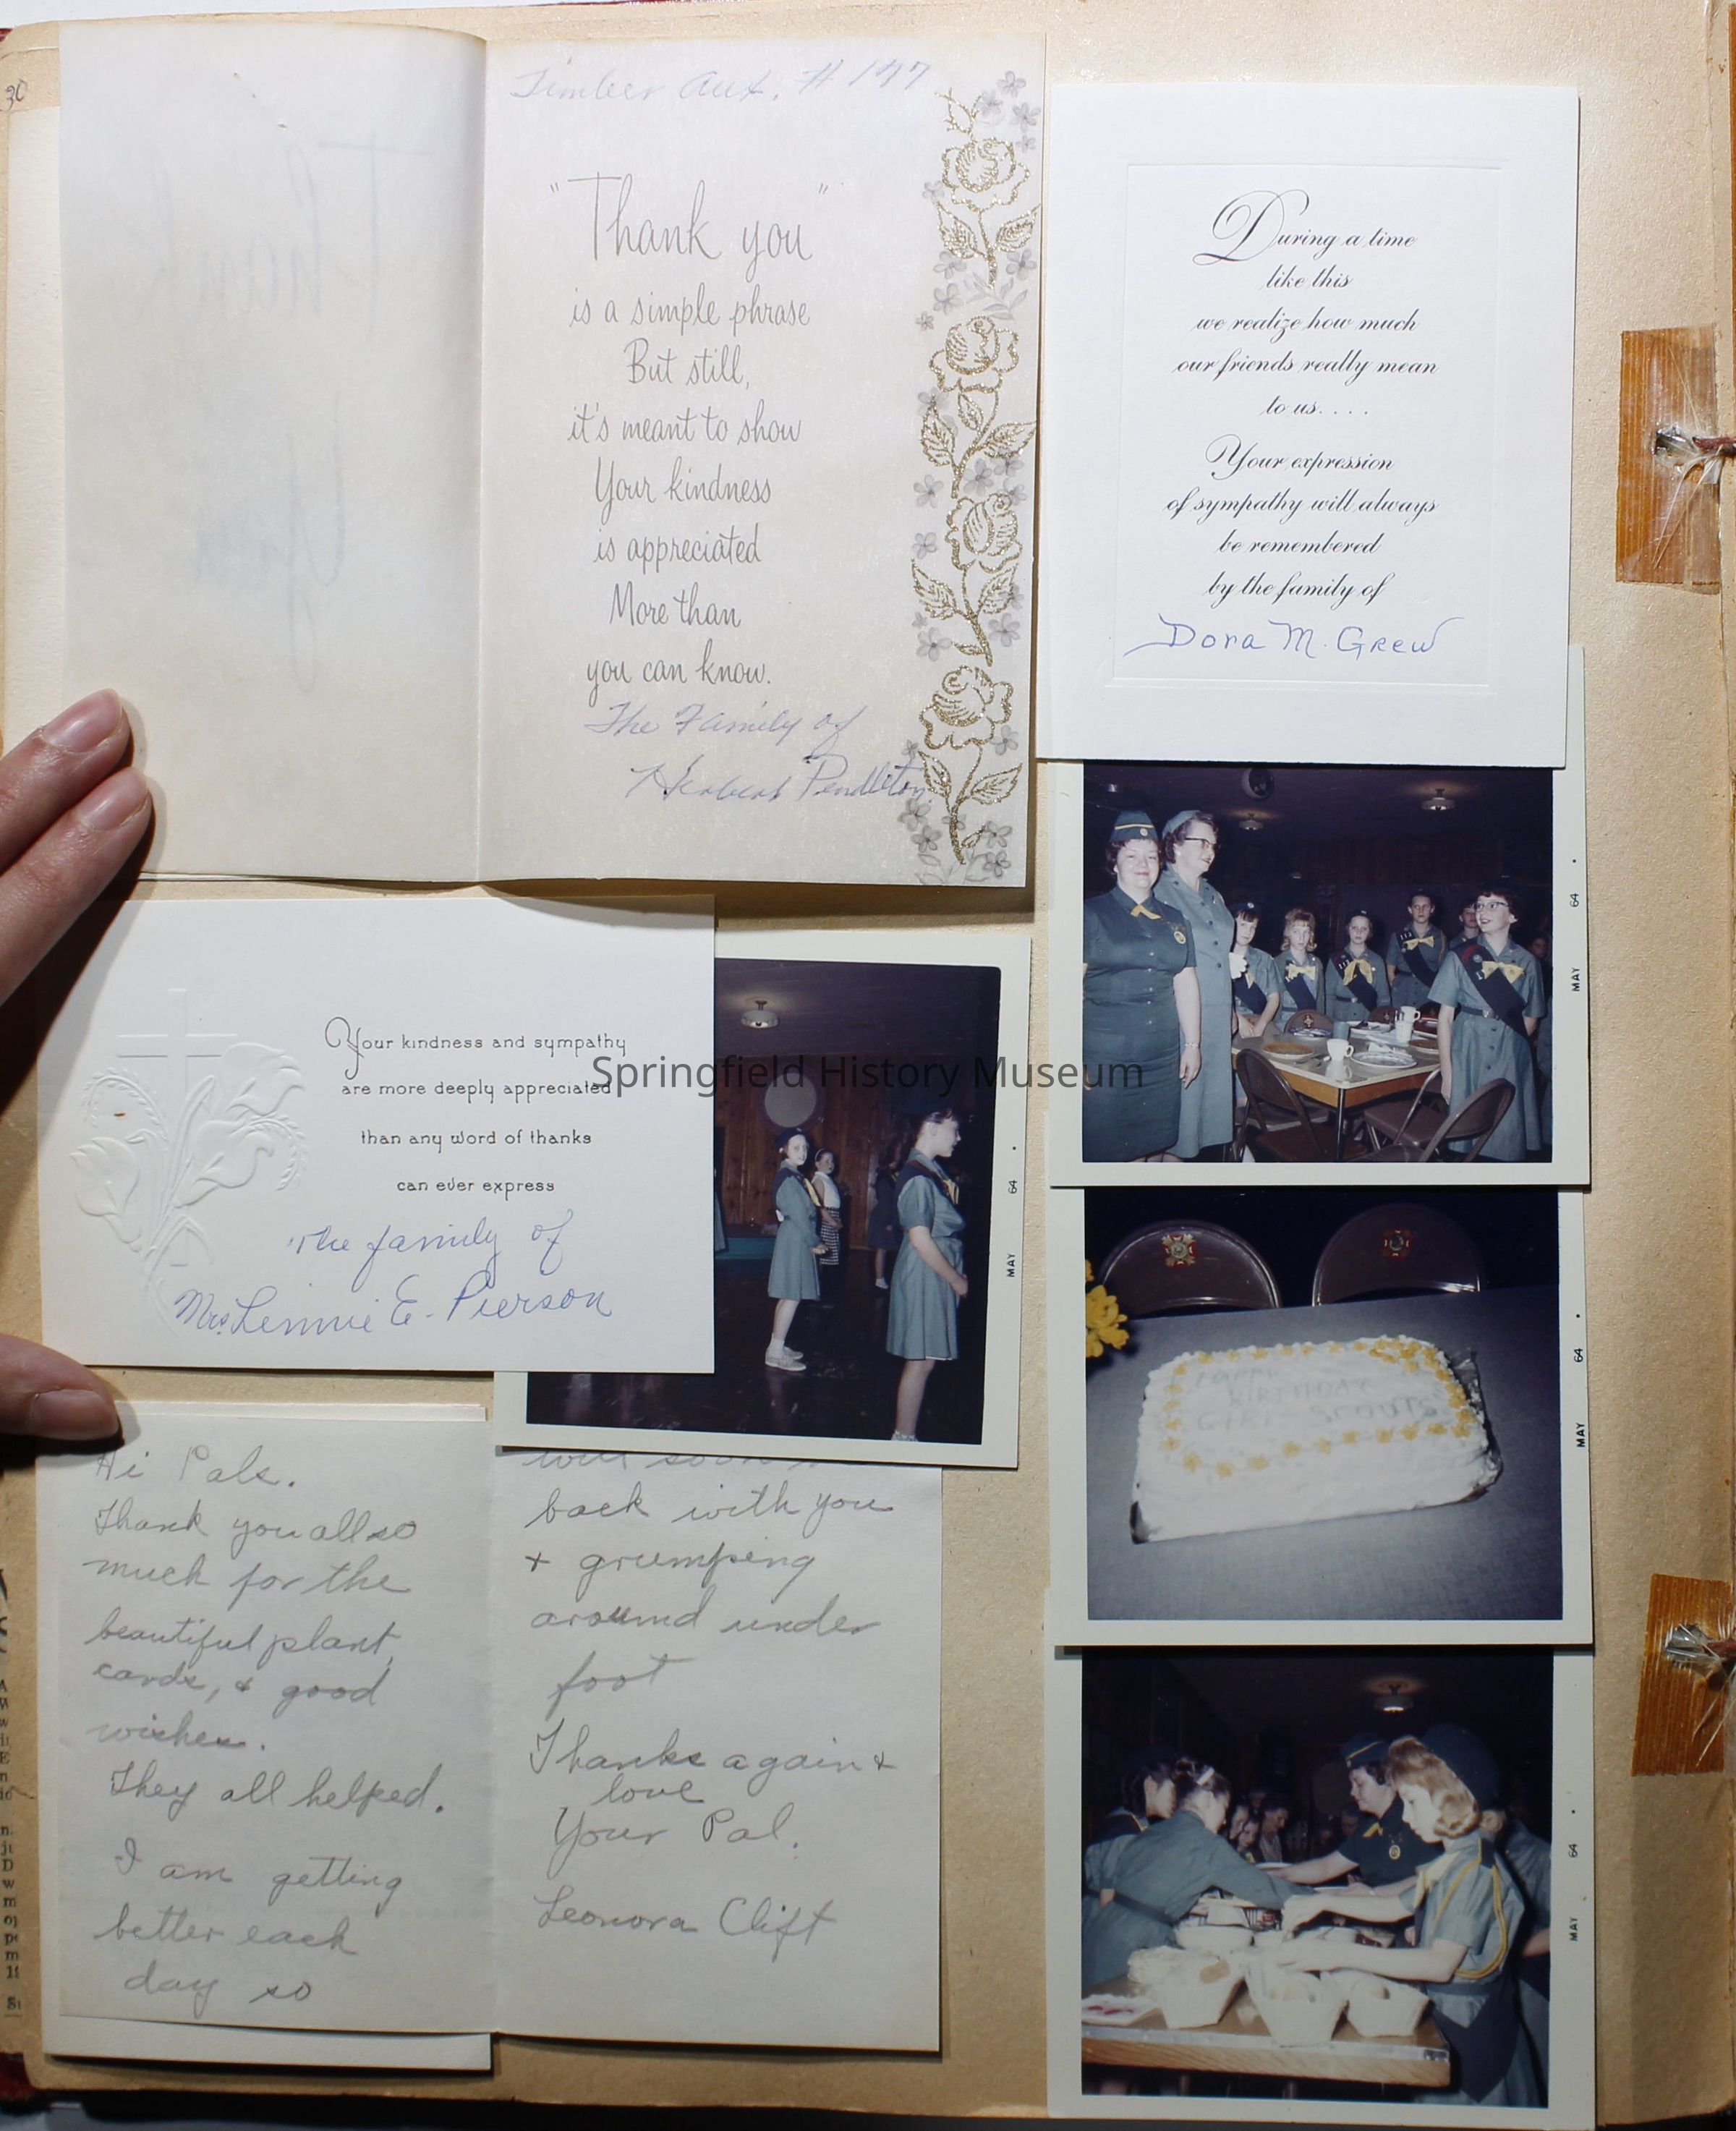 30
Timber Aux. # 147
"Thank you"
is a simple phrase
But still,
it's meant to show
Your kindness
is appreciated
More than
you can know.
The Family of
Herbert Pendleton
During a time
like this
we realize how much
our friends really mean
to us. . . .
Your expression
of sympathy will always
be remembered
by the family of
Dora M. Grew
Your kindness and sympathy
are more deeply appreciated
than any word of thanks
can ever express
The family of
Mrs. Lennie E. Pierson
Springfield History Museum
MAY 64
MAY 64
HAPPY
BIRTHDAY
GIRL SCOUTS
MAY 64
MAY 64
Hi Pals.
Thank you all so
much for the
beautiful plant,
cards, & good
wishes.
They all helped.
I am getting
better each
day so
will soon
back with you
+ grumping
around under
foot
Thanks again &
love
Your Pal.
Leonora Clift